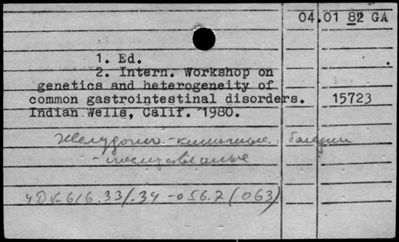 04.01 82 GA
1. Ed.
2. Intern. Workshop on
genetics and heterogeneity of
common gastrointestinal disorders. 15723
Indian Wells, Calif. 1980.
Желудочно-кишечные болезни
- наследственные
УДК 616.33/.34-056.7(063)